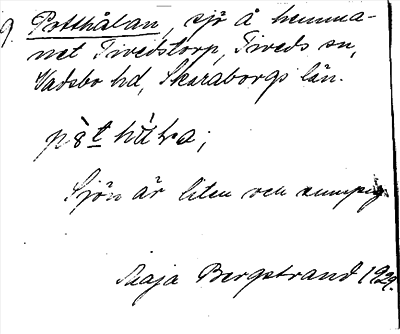 9. Potthålan, sjö å hemma-
net Tivedstorp, Tiveds sn,
Vadsbo hd, Skaraborgs län.
Sjön är liten och sumpig.
Maja Bergstrand 1929.